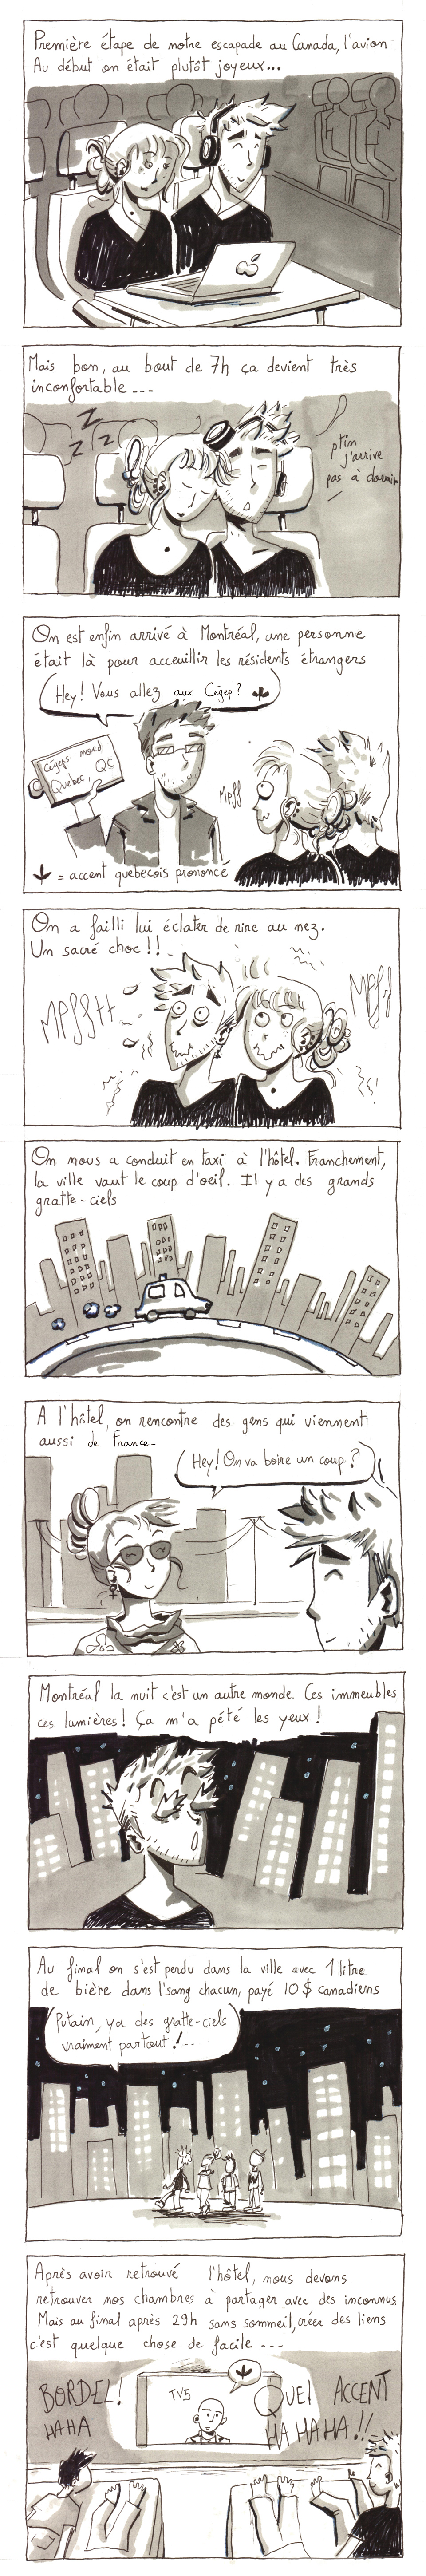 Première étape de notre escapade au Canada, l'avion
Au début on était plutôt joyeux...
Mais bon, au bout de 7h ça devient très
inconfortable ---
Z Z Z Z
ptin
j'arrive
pas à dormir
On est enfin arrivé à Montréal, une personne
était là pour acceuillir les résidents étrangers
Hey! Vous allez aux Cégep?
Cégeps
Québec, QC
Mpff
= accent quebecois prononcé
On a failli lui éclater de rire au nez.
Un sacré choc!!
MPfftt
Mpff
On nous a conduit en taxi à l'hôtel. Franchement,
la ville vaut le coup d'oeil. Il y a des grands
gratte-ciels
A l'hôtel, on rencontre des gens qui viennent
aussi de France.
Hey! On va boire un coup?
Montréal la nuit c'est un autre monde. Ces immeubles
ces lumières! Ça m'a pété les yeux!
Au final on s'est perdu dans la ville avec 1 litre
de bière dans l'sang chacun, payé 10$ canadiens
Putain, ya des gratte-ciels
vraiment partout!..
Après avoir retrouvé l'hôtel, nous devons
retrouver nos chambres à partager avec des inconnus
Mais au final après 29h sans sommeil, créer des liens
c'est quelque chose de facile ---
BORDEL!
HAHA
TV5
QUEL ACCENT
HA HA HA!!